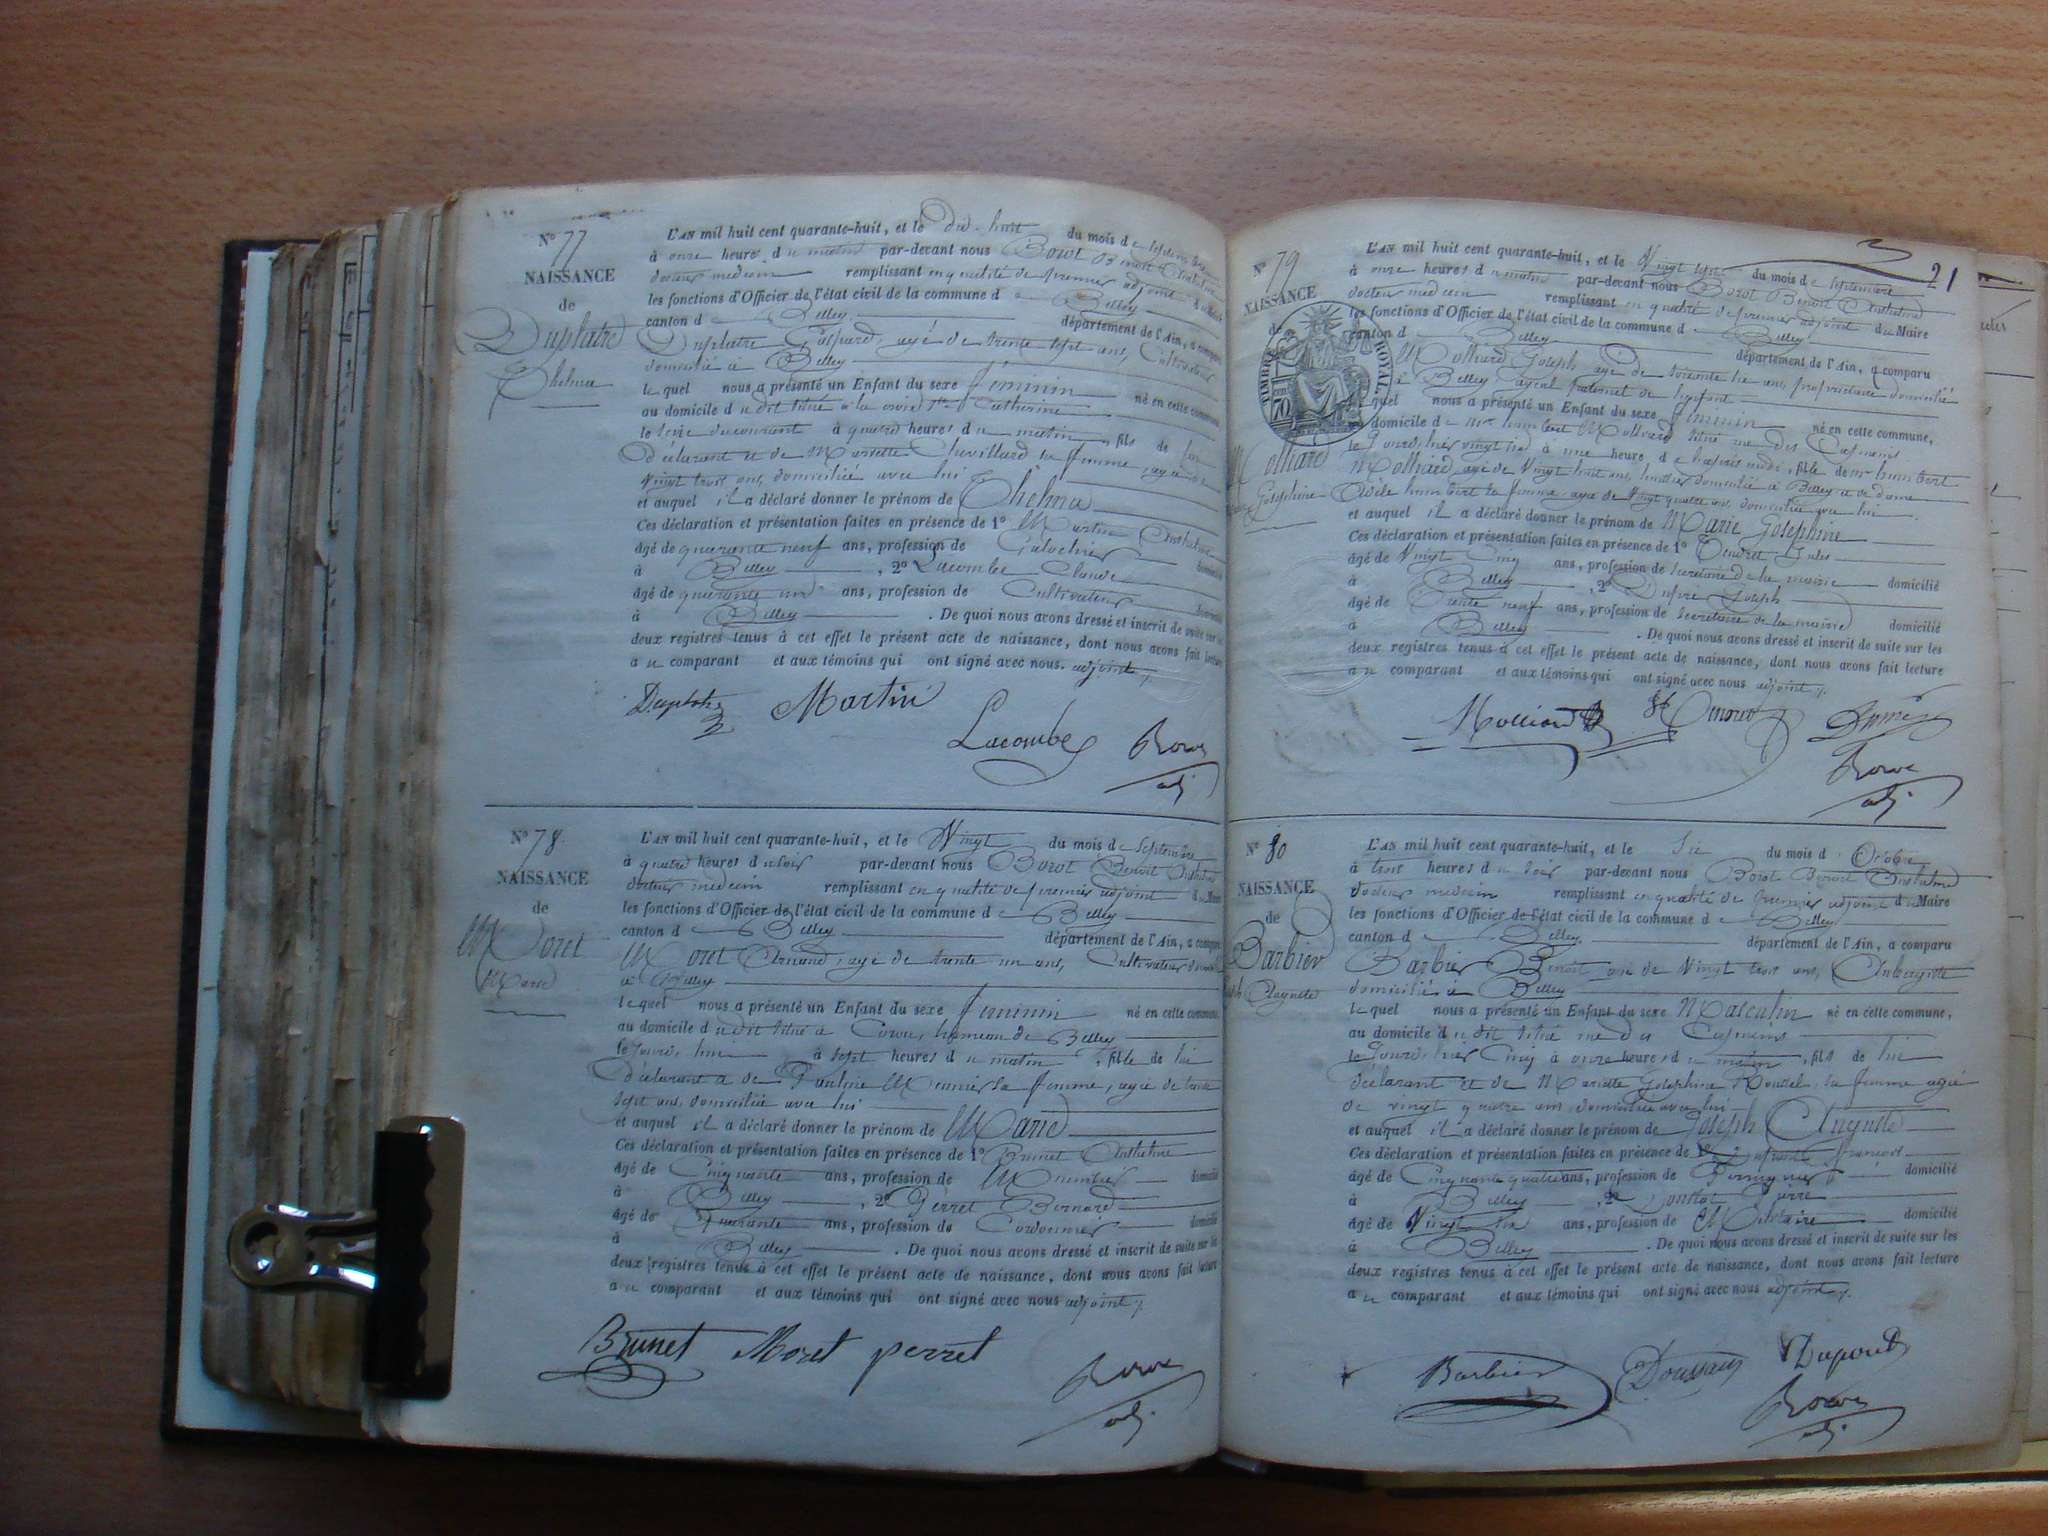 N° 77
NAISSANCE
de
Duplatre
Thelma
L'AN mil huit cent quarante-huit, et le dix-huit du mois de septembre
à onze heures du matin par-devant nous Borot Benoit Anthelme
docteur médecin remplissant en qualité de premier adjoint du Maire
les fonctions d'Officier de l'état civil de la commune de Belley
canton de Belley département de l'Ain, a comparu
Duplatre Gaspard, agé de trente sept ans, Cultivateur
domicilié à Belley
lequel nous a présenté un Enfant du sexe féminin né en cette commune
au domicile du dit situé à la croix Ste Catherine
le seize du courant à quatre heures du matin, fils de lui
déclarant et de Mariette Chevillard sa femme, agée de
vingt trois ans, domiciliée avec lui
et auquel il a déclaré donner le prénom de Thelma
Ces déclaration et présentation faites en présence de 1° Martin Anthelme
âgé de quarante neuf ans, profession de Galochier domicilié
à Belley, 2° Lacombe Claude
âgé de quarante un ans, profession de Cultivateur domicilié
à Belley. De quoi nous avons dressé et inscrit de suite sur les
deux registres tenus à cet effet le présent acte de naissance, dont nous avons fait lecture
au comparant et aux témoins qui ont signé avec nous adjoint
Duplatre Martin
Lacombe Borot
adj.
N° 78.
NAISSANCE
de
Moret
Marie
L'AN mil huit cent quarante-huit, et le Vingt du mois de Septembre
à quatre heures du soir par-devant nous Borot Benoit Anthelme
docteur médecin remplissant en qualité de premier adjoint du Maire
les fonctions d'Officier de l'état civil de la commune de Belley
canton de Belley département de l'Ain, a comparu
Moret Armand, agé de trente un ans, Cultivateur
à Belley
lequel nous a présenté un Enfant du sexe féminin né en cette commune
au domicile du dit situé à hameau de Belley
le jourd'hui à sept heures du matin, fille de lui
déclarant et de Pauline Meunier sa femme, agée de trente
sept ans, domiciliée avec lui
et auquel il a déclaré donner le prénom de Marie
Ces déclaration et présentation faites en présence de 1° Brunet Anthelme
âgé de Cinquante ans, profession de Meunier domicilié
à Belley, 2° Perret Bernard
âgé de Quarante ans, profession de Cordonnier domicilié
à Belley. De quoi nous avons dressé et inscrit de suite sur les
deux registres tenus à cet effet le présent acte de naissance, dont nous avons fait lecture
au comparant et aux témoins qui ont signé avec nous adjoint
Brunet Moret perret
Borot
adj.
21
N° 79
NAISSANCE
de
TIMBRE ROYAL
70
Molliard
Josephine
L'AN mil huit cent quarante-huit, et le Vingt sept du mois de septembre
à onze heures du matin par-devant nous Borot Benoit Anthelme
docteur médecin remplissant en qualité de premier adjoint du Maire
les fonctions d'Officier de l'état civil de la commune de Belley
canton de Belley département de l'Ain, a comparu
Molliard Joseph agé de soixante six ans, propriétaire domicilié
à Belley ayeul paternel de l'enfant
lequel nous a présenté un Enfant du sexe féminin né en cette commune,
au domicile de Mr humbert Molliard situé rue des Capucins
le jourd'hier vingt six à une heure de l'après midi, fille de Mr humbert
Molliard, agé de vingt huit ans, domicilié à Belley et de dame
Adèle humbert sa femme, agée de vingt quatre ans, domiciliée avec lui
et auquel il a déclaré donner le prénom de Marie Josephine
Ces déclaration et présentation faites en présence de 1° Tendret Jules
âgé de Vingt Cinq ans, profession de Secrétaire de la mairie domicilié
à Belley, 2° Dupré Joseph
âgé de Trente neuf ans, profession de Secrétaire de la mairie domicilié
à Belley. De quoi nous avons dressé et inscrit de suite sur les
deux registres tenus à cet effet le présent acte de naissance, dont nous avons fait lecture
au comparant et aux témoins qui ont signé avec nous adjoint
Molliard Dupré
Borot
adj.
N° 80
NAISSANCE
de
Barbier
Joseph Auguste
L'AN mil huit cent quarante-huit, et le Six du mois d'Octobre
à trois heures du soir par-devant nous Borot Benoit Anthelme
docteur médecin remplissant en qualité de premier adjoint du Maire
les fonctions d'Officier de l'état civil de la commune de Belley
canton de Belley département de l'Ain, a comparu
Barbier Benoit agé de Vingt trois ans, Aubergiste
domicilié à Belley
lequel nous a présenté un Enfant du sexe Masculin né en cette commune,
au domicile du dit situé rue des Capucins
le jourd'hier Cinq à onze heures du matin, fils de lui
déclarant et de Mariette Josephine sa femme agée
de vingt quatre ans, domiciliée avec lui
et auquel il a déclaré donner le prénom de Joseph Auguste
Ces déclaration et présentation faites en présence de 1° Dupont françois
âgé de Cinquante quatre ans, profession de Perruquier domicilié
à Belley, 2° Pierre
âgé de Vingt six ans, profession de Militaire domicilié
à Belley. De quoi nous avons dressé et inscrit de suite sur les
deux registres tenus à cet effet le présent acte de naissance, dont nous avons fait lecture
au comparant et aux témoins qui ont signé avec nous adjoint
Barbier Dupont
Borot
adj.